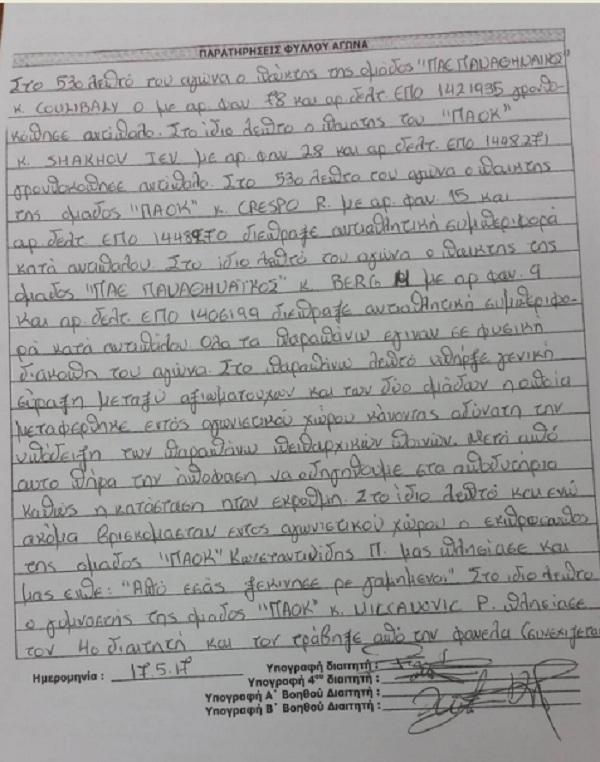 ΠΑΡΑΤΗΡΗΣΕΙΣ ΦΥΛΛΟΥ ΑΓΩΝΑ
Στο 53ο λεπτό του αγώνα ο παίκτης της ομάδος "ΠΑΕ ΠΑΝΑΘΗΝΑΪΚΟΣ"
κ. COULIBALY O με αρ. φαν 78 και αρ. δελτ. ΕΠΟ 1421935 γρονθο-
κόπησε αντίπαλο. Στο ίδιο λεπτό ο παίκτης του "ΠΑΟΚ"
κ. SHAKHOV IEV με αρ. φαν 28 και αρ. δελτ. ΕΠΟ 1448271
γρονθοκόπησε αντίπαλο. Στο 53ο λεπτο του αγώνα ο παίκτης
της ομαδος "ΠΑΟΚ" κ. CRESPO R. με αρ. φαν. 15 και
αρ. δελτ. ΕΠΟ διέπραξε αντιαθλητική συμπεριφορά
κατά αντιπάλου. Στο ίδιο λεπτό του αγώνα ο παίκτης της
ομαδος "ΠΑΕ ΠΑΝΑΘΗΝΑΪΚΟΣ" κ. BERG με αρ φαν. 9
και αρ. δελτ. ΕΠΟ 1406199 διέπραξε αντιαθλητική συμπεριφο-
ρά κατά αντιπάλου. Ολα τα παραπάνω εγιναν σε φυσική
διακοπή του αγώνα. Στο παραπάνω λεπτό υπήρξε γενική
σύραξη μεταξύ αξιωματουχων και των δύο ομάδων η οποία
μεταφέρθηκε εντός αγωνιστικού χώρου κάνοντας αδύνατη την
υπόδειξη των παραπάνω πειθαρχικών ποινών. Μετά από
αυτο πήρα την απόφαση να οδηγηθούμε στα αποδυτήρια
καθώς η κατάσταση ηταν εκρυθμη. Στο ίδιο λεπτό και ενώ
ακόμα βρισκόμασταν εντός αγωνιστικού χώρου ο εκπρόσωπος
της ομαδος "ΠΑΟΚ" Κωνσταντινίδης Π. μας πλησίασε και
μας είπε: "Από εσάς ξεκίνησε ρε γαμημένοι" Στο ίδιο λεπτο
ο γυμναστής της ομαδος "ΠΑΟΚ" κ. P. πλησίασε
τον 4ο διαιτητή και τον τράβηξε από την φανέλα (συνεχίζεται
Ημερομηνία : 17.5.17
Υπογραφή διαιτητή :
Υπογραφή 4ου διαιτητή :
Υπογραφή Α' Βοηθού Διαιτητή :
Υπογραφή Β' Βοηθού Διαιτητή :